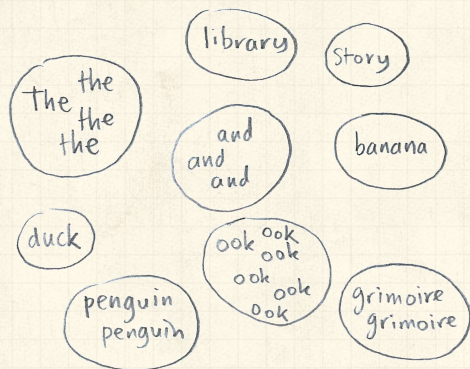 library
Story
the
The
the
the
and
and
and
banana
duck
ook
ook
ook
ook
ook
ook
penguin
penguin
grimoire
grimoire